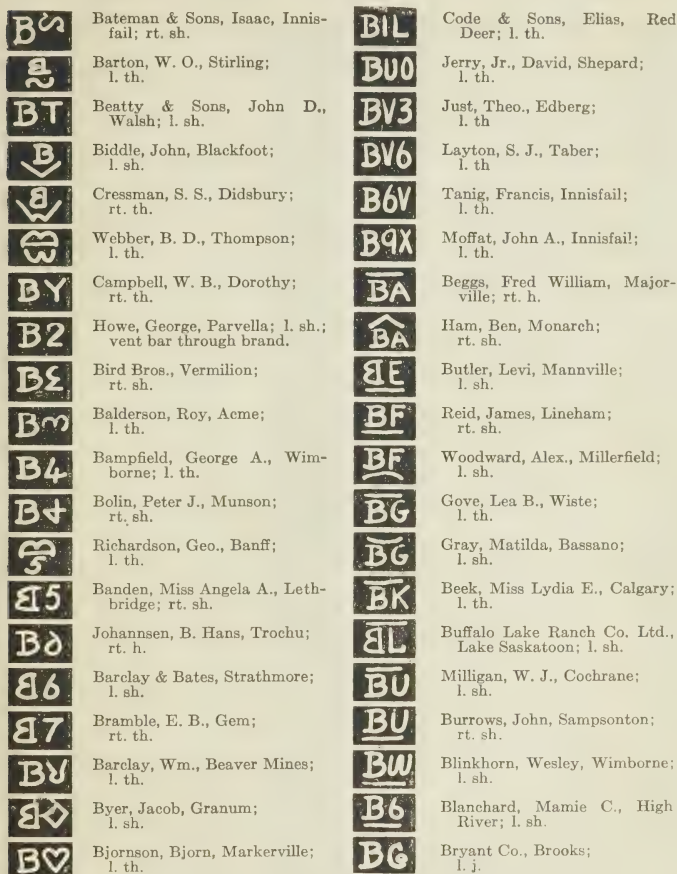 Bateman & Sons, Isaac, Innis-
fail; rt. sh.
Barton, W. O., Stirling;
l. th.
BT
Beatty & Sons, John D.,
Walsh; l. sh.
B
Biddle, John, Blackfoot;
l. sh.
Cressman, S. S., Didsbury;
rt. th.
Webber, B. D., Thompson;
l. th.
BY
Campbell, W. B., Dorothy;
rt. th.
B2
Howe, George, Parvella; l. sh.;
vent bar through brand.
Bird Bros., Vermilion;
rt. sh.
Balderson, Roy, Acme;
l. th.
B4
Bampfield, George A., Wim-
borne; l. th.
Bolin, Peter J., Munson;
rt. sh.
Richardson, Geo., Banff;
l. th.
Banden, Miss Angela A., Leth-
bridge; rt. sh.
Johannsen, B. Hans, Trochu;
rt. h.
Barclay & Bates, Strathmore;
l. sh.
Bramble, E. B., Gem;
rt. th.
Barclay, Wm., Beaver Mines;
l. th.
Byer, Jacob, Granum;
l. sh.
B♡
Bjornson, Bjorn, Markerville;
l. th.
BIL
Code & Sons, Elias, Red
Deer; l. th.
BUO
Jerry, Jr., David, Shepard;
l. th.
BV3
Just, Theo., Edberg;
l. th
BV6
Layton, S. J., Taber;
l. th
B6V
Tanig, Francis, Innisfail;
l. th.
B9X
Moffat, John A., Innisfail;
l. th.
BA
Beggs, Fred William, Major-
ville; rt. h.
BA
Ham, Ben, Monarch;
rt. sh.
Butler, Levi, Mannville;
l. sh.
BF
Reid, James, Lineham;
rt. sh.
BF
Woodward, Alex., Millerfield;
l. sh.
BG
Gove, Lea B., Wiste;
l. th.
BG
Gray, Matilda, Bassano;
l. sh.
BK
Beek, Miss Lydia E., Calgary;
l. th.
Buffalo Lake Ranch Co. Ltd.,
Lake Saskatoon; l. sh.
BU
Milligan, W. J., Cochrane;
l. sh.
BU
Burrows, John, Sampsonton;
rt. sh.
BW
Blinkhorn, Wesley, Wimborne;
l. sh.
B6
Blanchard, Mamie C., High
River; l. sh.
Bryant Co., Brooks;
l. j.